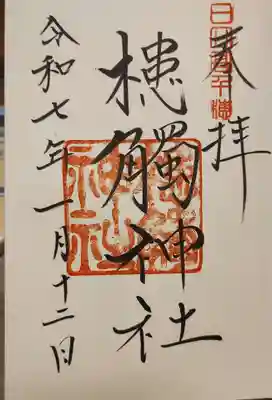 日向高千穂
奉拝
槵觸神社
令和七年一月十二日